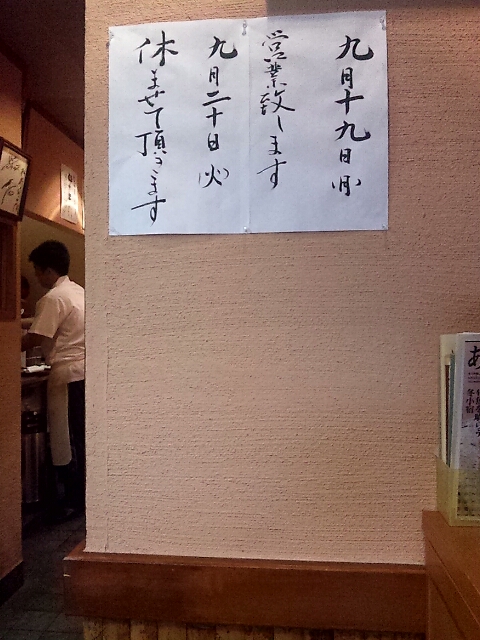 九月十九日(月)
営業致します
九月二十日(火)
休ませて頂きます